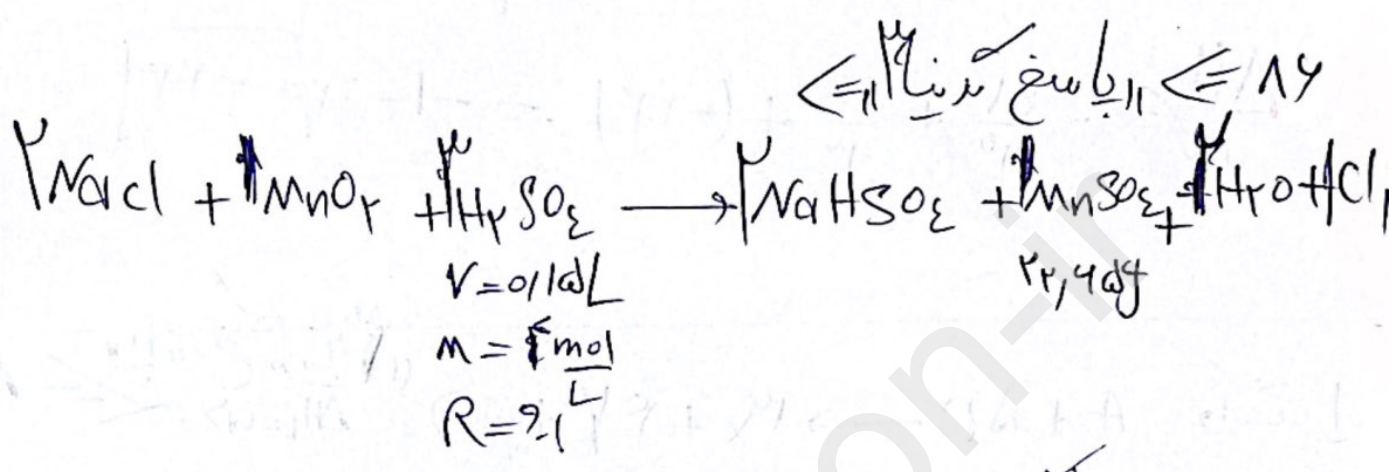 ۸۶ => "پاسخ گزینه ۳" =>
۲NaCl + ۱MnO۲ + ۳H۲SO۴ → ۲NaHSO۴ + ۱MnSO۴ + ۲H۲O + Cl۲
V = ۰/۱۵L ۲۲,۶۵g
M = ۴ mol/L
R = ?
on-ir